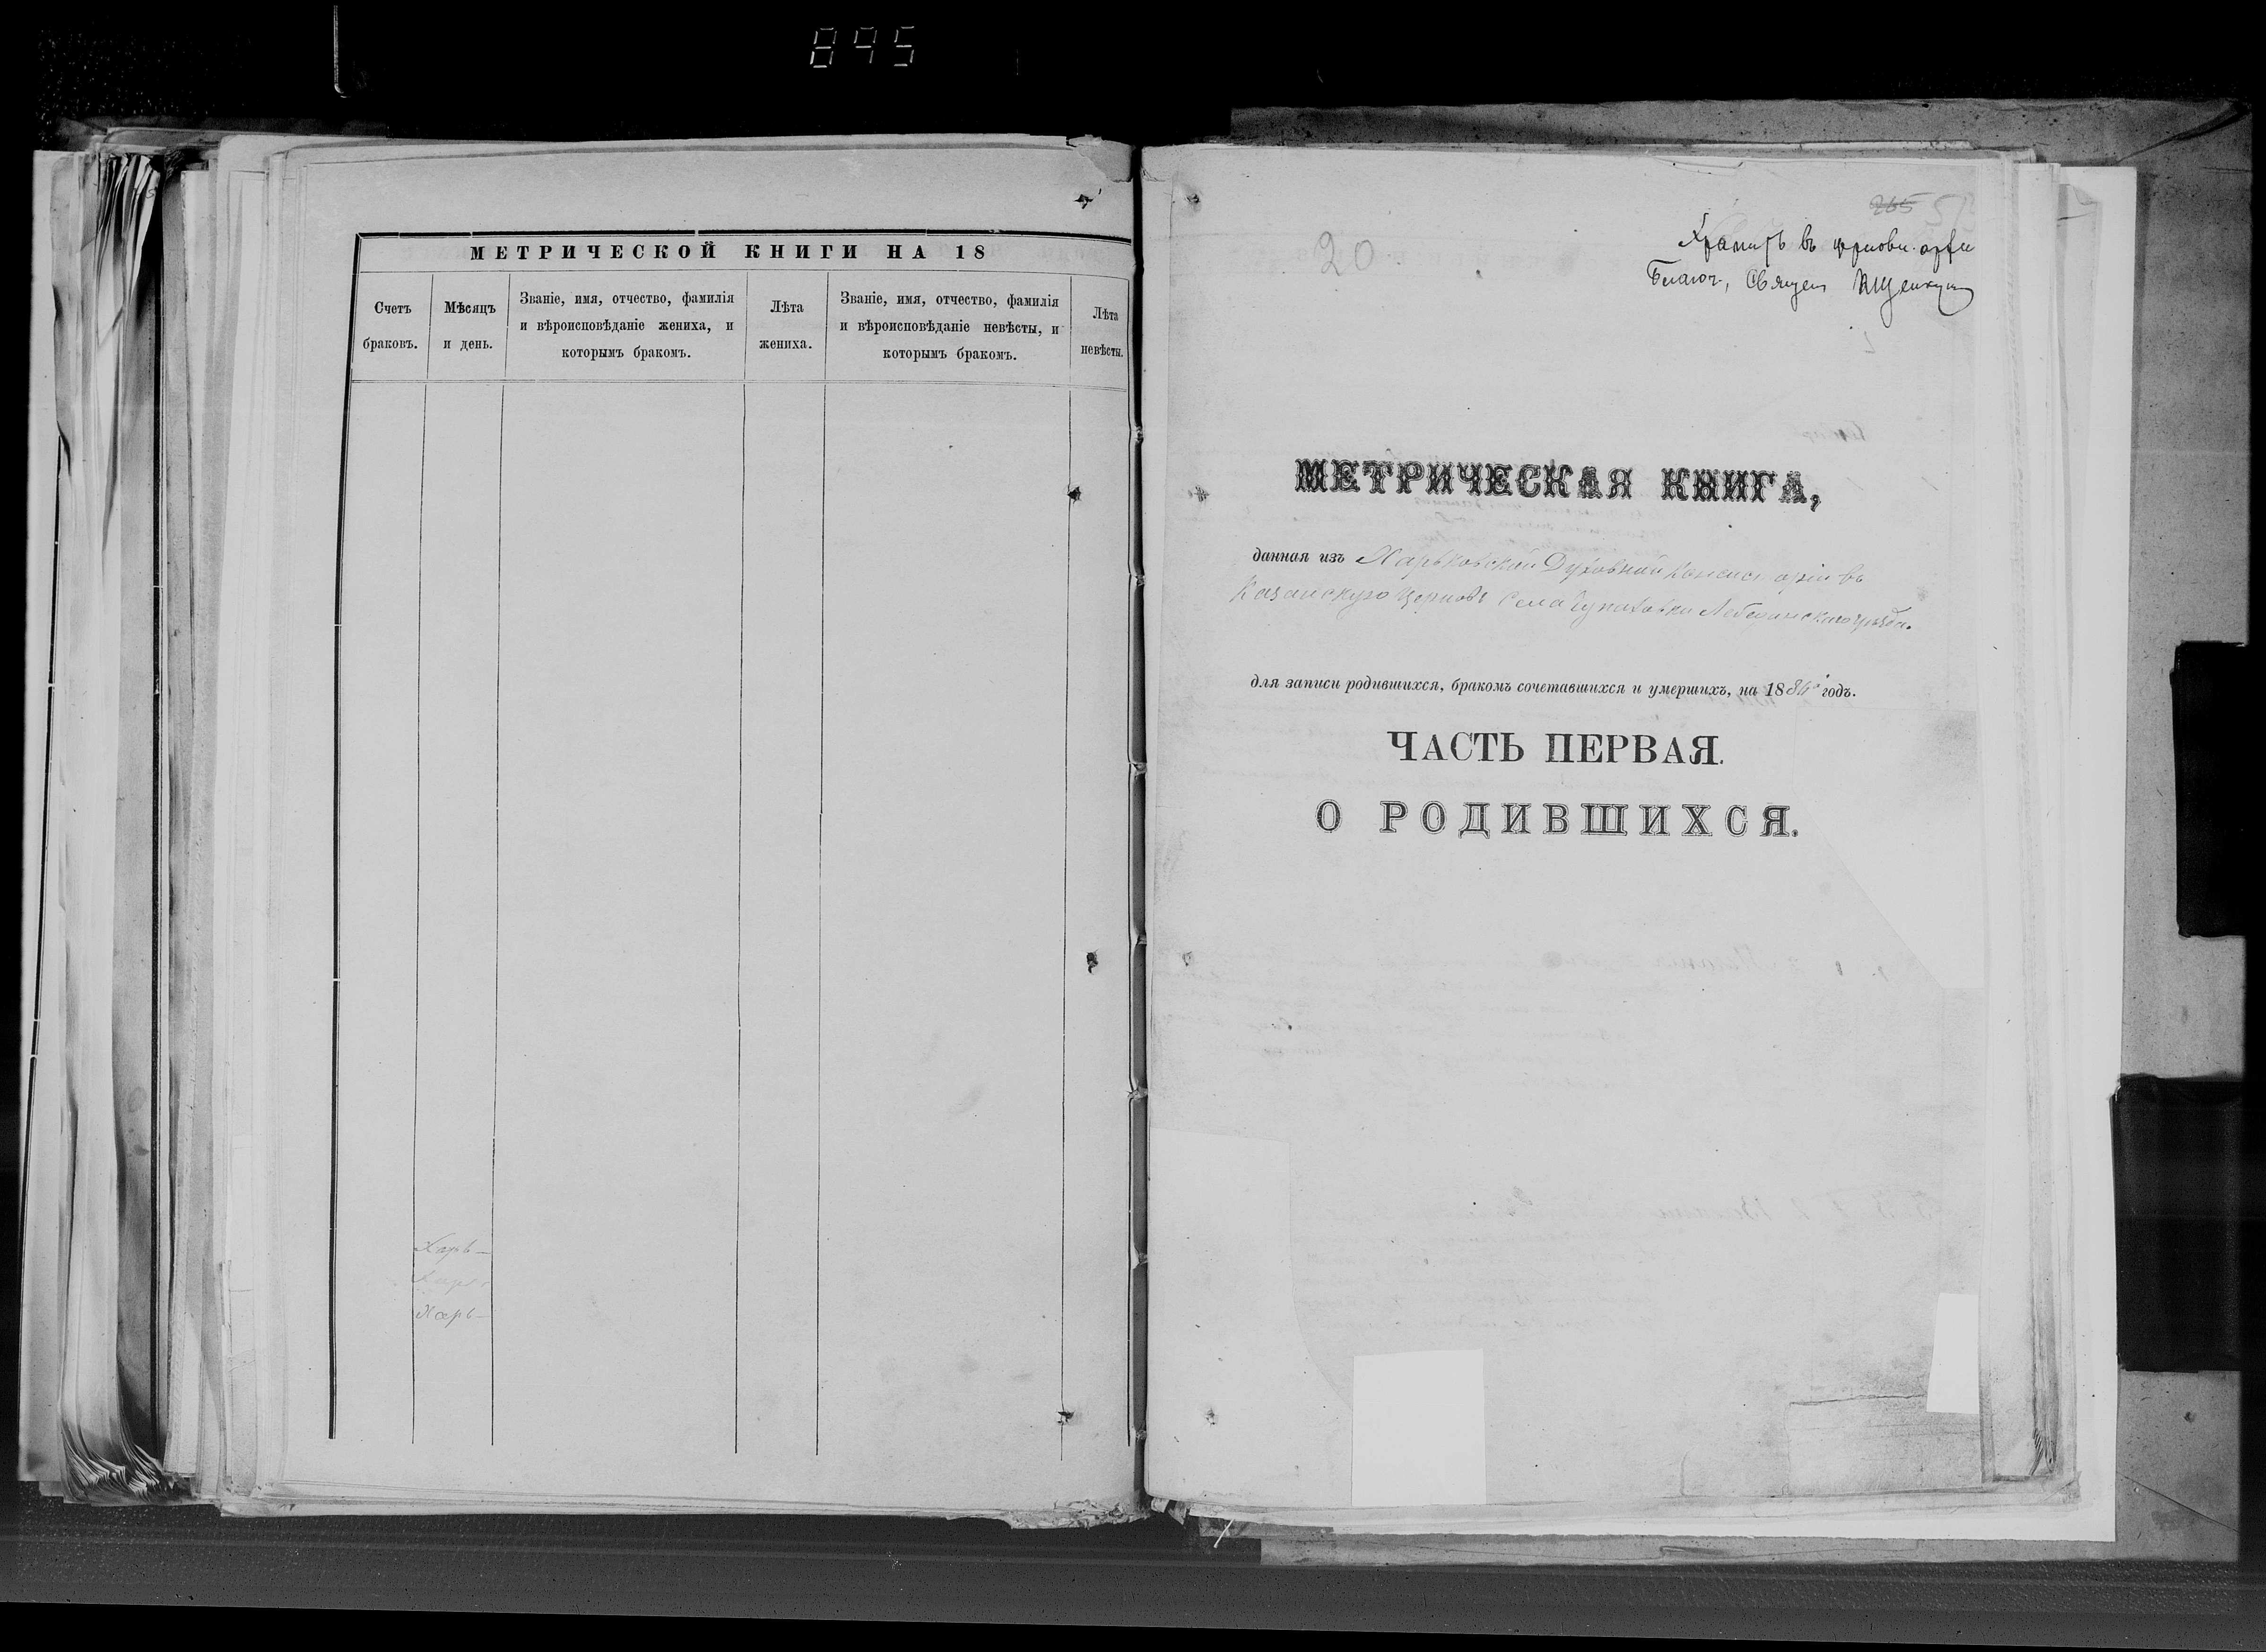 895
МЕТРИЧЕСКОЙ КНИГИ НА 18
Счетъ
браковъ.
Мѣсяцъ
и день.
Званіе, имя, отчество, фамилія
и вѣроисповѣданіе жениха, и
которымъ бракомъ.
Лѣта
жениха.
Званіе, имя, отчество, фамилія
и вѣроисповѣданіе невѣсты, и
которымъ бракомъ.
Лѣта
невѣсты.
Харь-
Харь-
Харь-
265
20
Хранить въ церковн.
Благоч., Священ
МЕТРИЧЕСКАЯ КНИГА,
данная изъ Харьковской Духовной Консисторіи въ
Казанскую Церковь Села Чупаховки Лебединскаго уѣзда.
для записи родившихся, бракомъ сочетавшихся и умершихъ, на 1886й годъ.
ЧАСТЬ ПЕРВАЯ.
О РОДИВШИХСЯ.